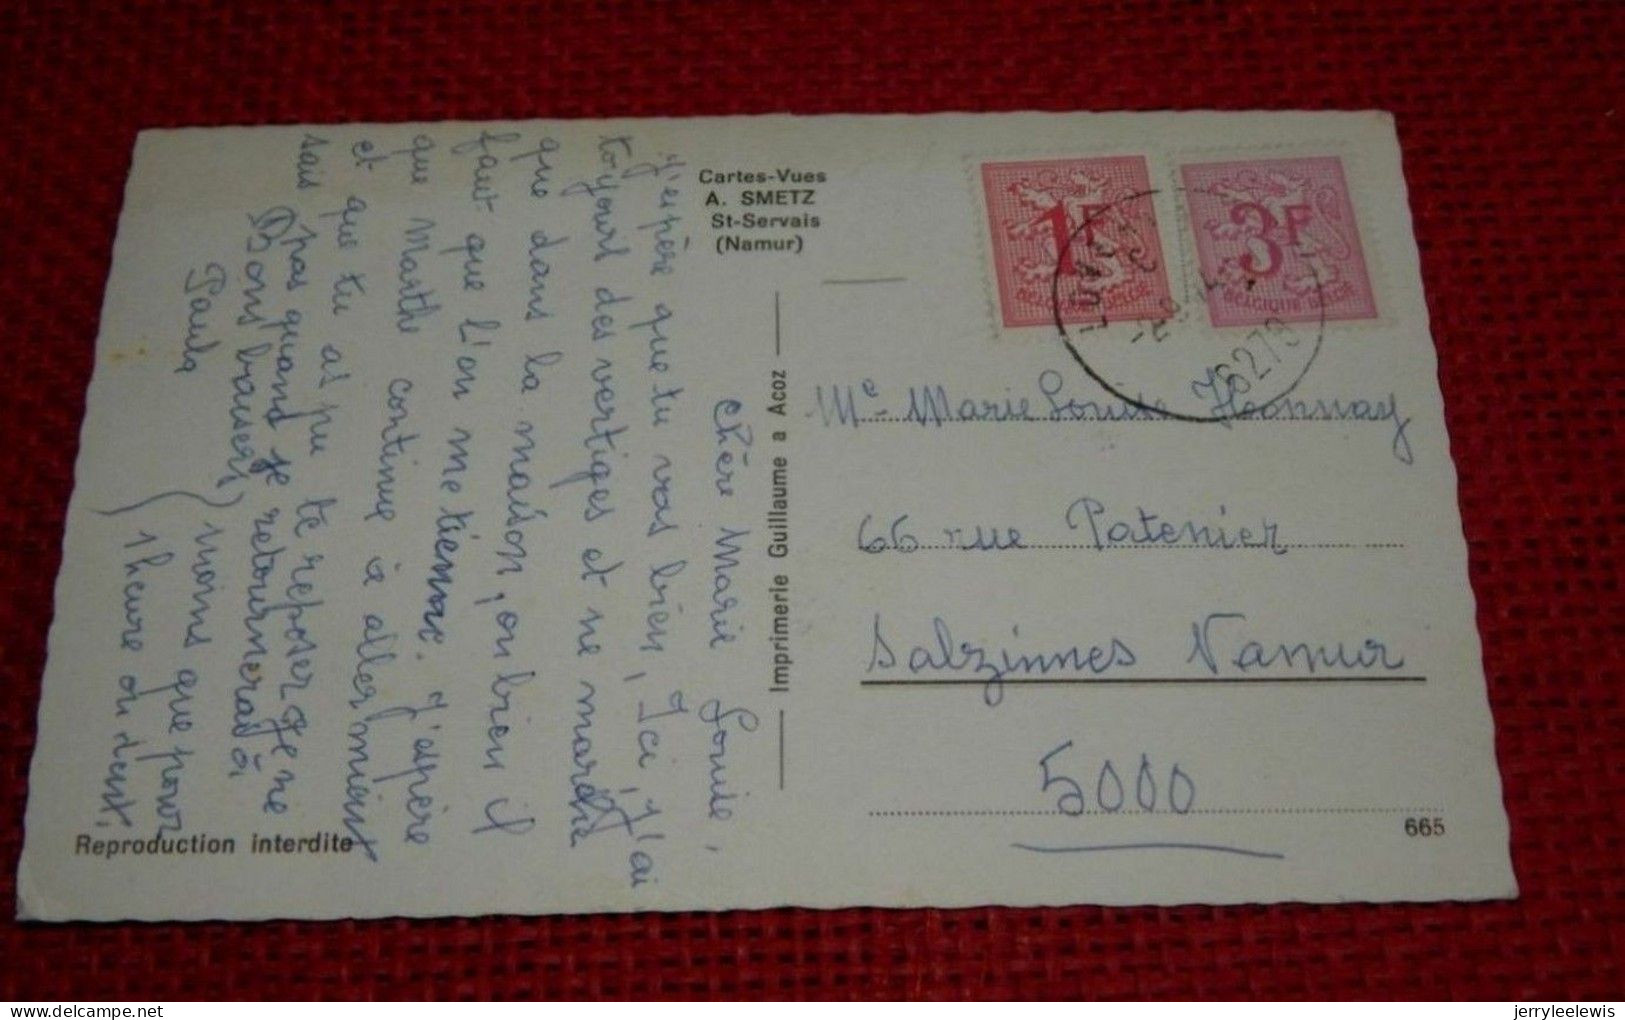 chère Marie Louise,
j'espère que tu vas bien, Ici, j'ai
toujours des vertiges et ne marche
que dans la maison, ou bien il
faut que l'on me tienne. J'espère
que Marthe continue à aller mieux
et que tu as pu te reposer, je ne
sais pas quand je retournerai à
moins que pour
1 heure ou deux,
Bons baisers
Paula
Cartes-Vues
A. SMETZ
St-Servais
(Namur)
Imprimerie Guillaume a Acoz
1F
BELGIQUE BELGIE
3F
BELGIQUE BELGIE
Me Marie Louise
66 rue Patenier
Salzinnes Namur
5000
665
Reproduction interdite
jerryleelewis
delcampe.net